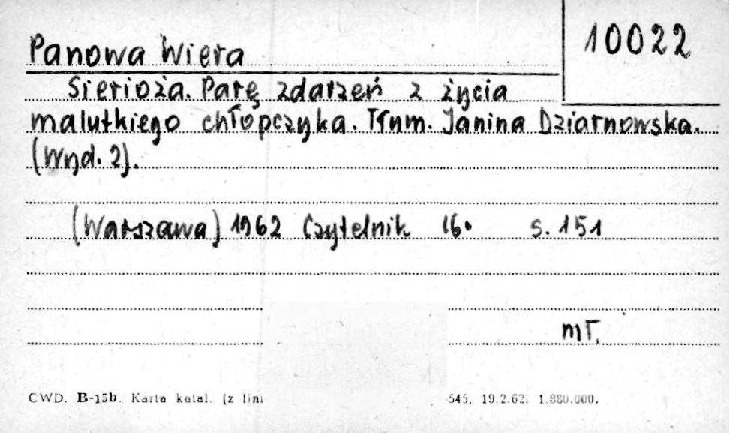 10022
Panowa Wiera
Sierioża. Parę zdarzeń z życia
malutkiego chłopczyka. Tłum. Janina Dziarnowska.
(Wyd. 2).
(Warszawa) 1962 Czytelnik 16° s. 151
mT.
CWD. B-15b. Karta katal. (z lini 545. 19.2.62. 1.880.000.